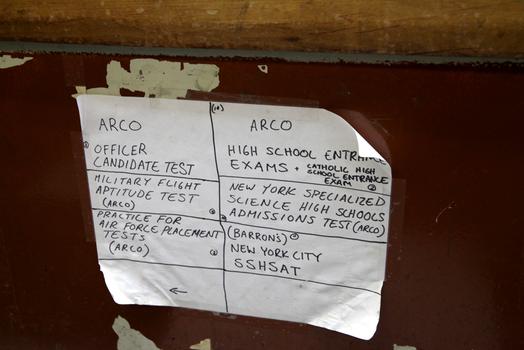 ARCO
OFFICER
CANDIDATE TEST
MILITARY FLIGHT
APTITUDE TEST
(ARCO)
PRACTICE FOR
AIR FORCE PLACEMENT
TESTS
(ARCO)
←
ARCO
HIGH SCHOOL ENTRANCE
EXAMS + CATHOLIC HIGH
SCHOOL ENTRANCE
EXAM
NEW YORK SPECIALIZED
SCIENCE HIGH SCHOOLS
ADMISSIONS TEST (ARCO)
(BARRON'S)
NEW YORK CITY
SSHSAT